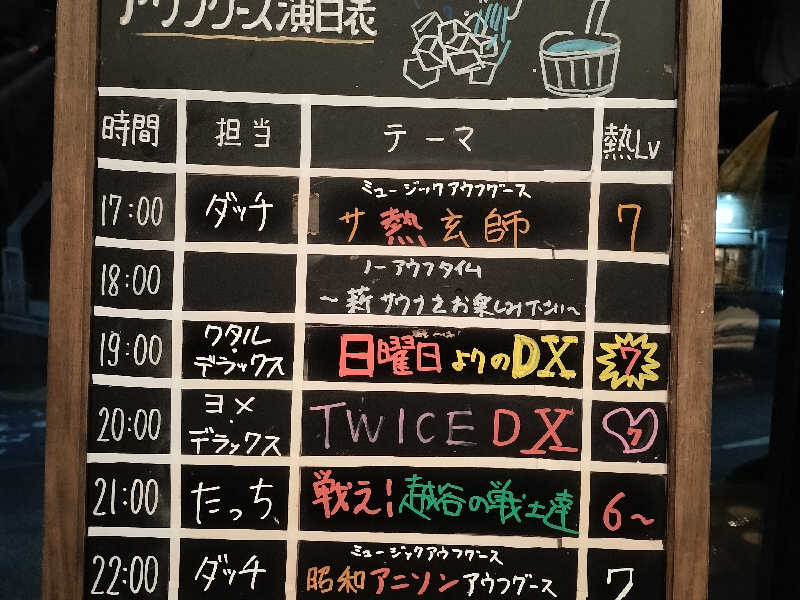 アウフグース演目表
時間 担当 テーマ 熱Lv
17:00 ダッチ ミュージックアウフグース
サ熱玄師 7
18:00 ノーアウフタイム
～薪サウナをお楽しみ下さい～
19:00 ワタル・デラックス 日曜日よりのDX 7
20:00 ヨメ・デラックス TWICE DX 7
21:00 たっち 戦え!越谷の戦士達 6～
22:00 ダッチ ミュージックアウフグース
昭和アニソンアウフグース 7